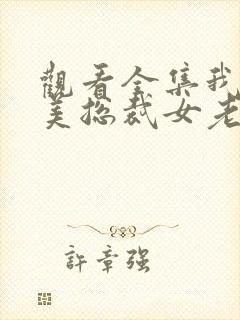 觀看全集我
美總裁女老
許章強